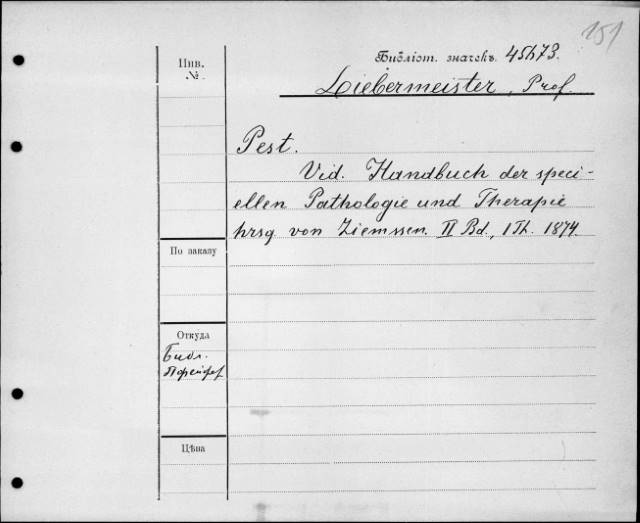 151
Инв.
№.
Библіот. значекъ. 45673.
Liebermeister, Prof.
Pest.
Vid. Handbuch der speci-
ellen Pathologie und Therapie
hrsg von Ziemssen. II Bd., 1 Th. 1874.
По заказу
Откуда
Библ.
Пфейфер
Цѣна